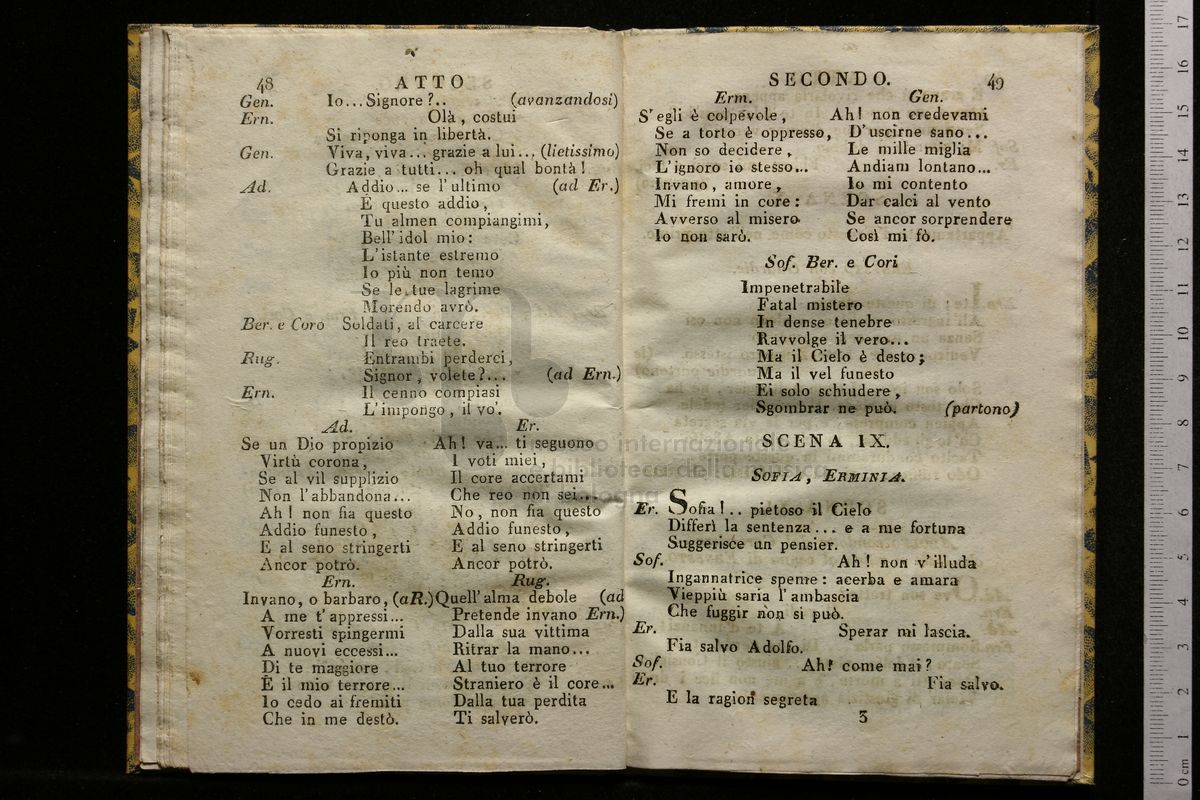 48 ATTO
Gen. Io...Signore?.. (avanzandosi)
Ern. Olà, costui
Si riponga in libertà.
Gen. Viva, viva... grazie a lui.., (lietissimo)
Grazie a tutti... oh qual bontà!
Ad. Addio... se l'ultimo (ad Er.)
E questo addio,
Tu almen compiangimi,
Bell'idol mio:
L'istante estremo
Io più non temo
Se le tue lagrime
Morendo avrò.
Ber. e Coro Soldati, al carcere
Il reo traete.
Rug. Entrambi perderci,
Signor, volete?... (ad Ern.)
Ern. Il cenno compiasi
L'impongo, il vo'.
Ad.
Se un Dio propizio
Virtù corona,
Se al vil supplizio
Non l'abbandona...
Ah! non fia questo
Addio funesto,
E al seno stringerti
Ancor potrò.
Er.
Ah! va... ti seguono
I voti miei,
Il core accertami
Che reo non sei...
No, non fia questo
Addio funesto,
E al seno stringerti
Ancor potrò.
Ern.
Invano, o barbaro, (aR.)
A me t'appressi...
Vorresti spingermi
A nuovi eccessi...
Di te maggiore
È il mio terrore...
Io cedo ai fremiti
Che in me destò.
Rug.
Quell'alma debole (ad
Pretende invano Ern.)
Dalla sua vittima
Ritrar la mano...
Al tuo terrore
Straniero è il core...
Dalla tua perdita
Ti salverò.
SECONDO. 49
Erm.
S'egli è colpevole,
Se a torto è oppresso,
Non so decidere,
L'ignoro io stesso...
Invano, amore,
Mi fremi in core:
Avverso al misero
Io non sarò.
Gen.
Ah! non credevami
D'uscirne sano...
Le mille miglia
Andiam lontano...
Io mi contento
Dar calci al vento
Se ancor sorprendere
Così mi fò.
Sof. Ber. e Cori
Impenetrabile
Fatal mistero
In dense tenebre
Ravvolge il vero...
Ma il Cielo è desto;
Ma il vel funesto
Ei solo schiudere,
Sgombrar ne può. (partono)
SCENA IX.
SOFIA, ERMINIA.
Er. Sofia!.. pietoso il Cielo
Differì la sentenza... e a me fortuna
Suggerisce un pensier.
Sof. Ah! non v'illuda
Ingannatrice speme: acerba e amara
Vieppiù saria l'ambascia
Che fuggir non si può.
Er. Sperar mi lascia.
Fia salvo Adolfo.
Sof. Ah! come mai?
Er. Fia salvo.
E la ragion segreta
3